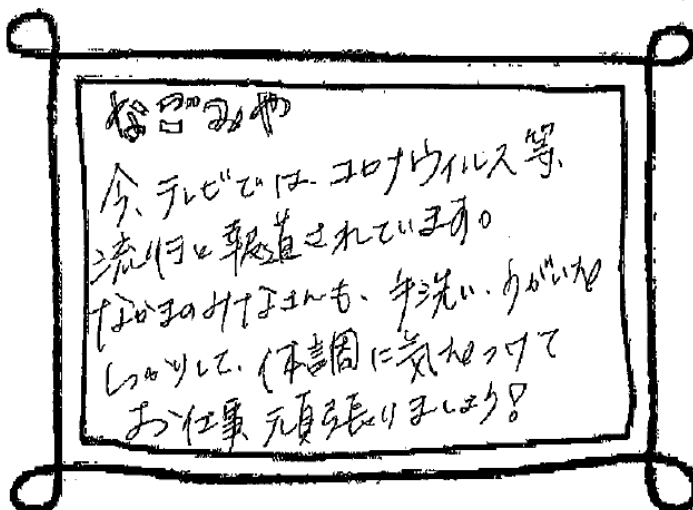 なごみや
今、テレビでは、コロナウィルス等、
流行と報道されています。
なかまのみなさんも、手洗い、うがいを
しっかりして、体調に気をつけて
お仕事頑張りましょう!